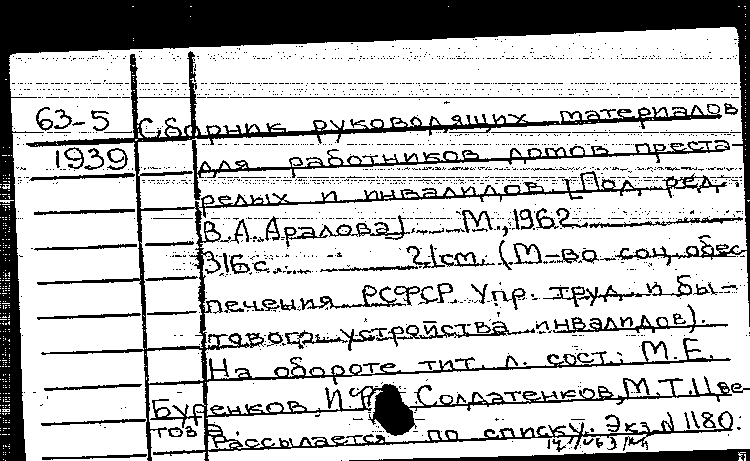 63-5 Сборник руководящих материалов
1939 для работников домов преста-
релых и инвалидов. [Под ред.
В.А.Аралова] М., 1962
316с. 21см. (М-во соц. обес
печения РСФСР. Упр. труд. и бы-
тового устройства инвалидов).
На обороте тит. л. сост.: М.Е.
Буренков, Солдатенков, М.Т.Цве-
това
Рассылается по списку. Экз.N1180.